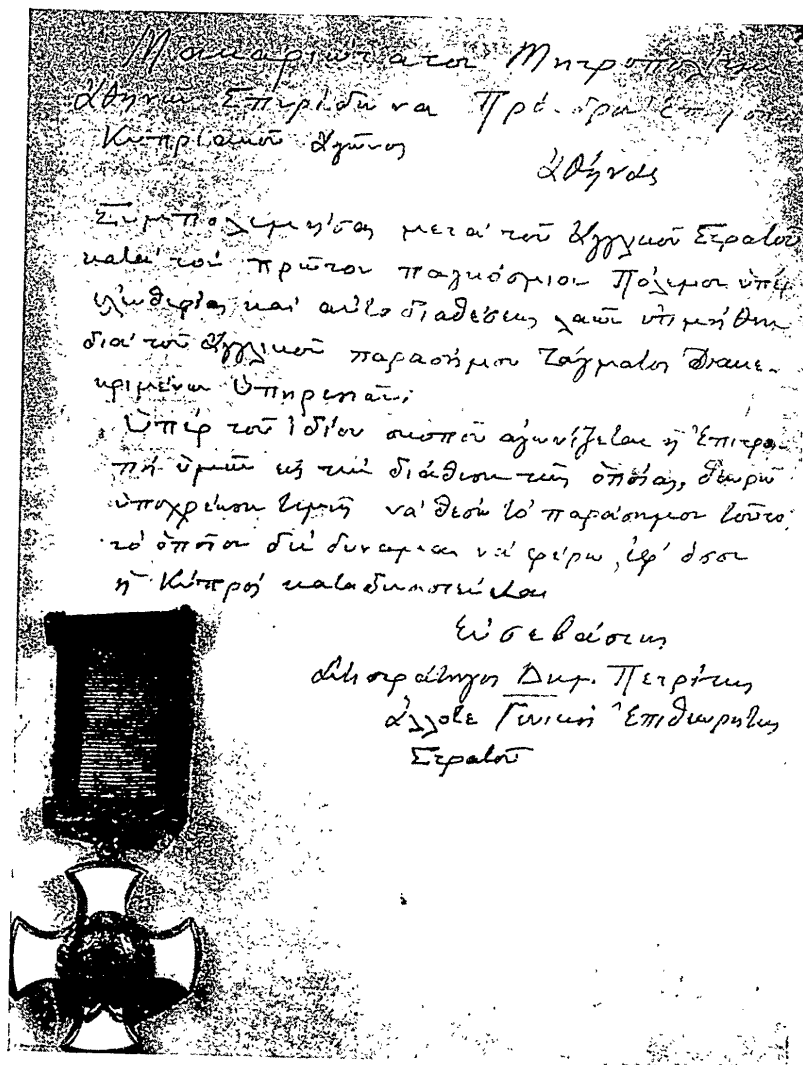 Μακαριώτατον Μητροπολίτην
Ἀθηνῶν Σπυρίδωνα Πρόεδρον
Κυπριακοῦ Ἀγῶνος
Ἀθήνας
Συμπολεμήσας μετὰ τοῦ Ἀγγλικοῦ Στρατοῦ
κατὰ τὸν πρῶτον παγκόσμιον Πόλεμον ὑπὲρ
ἐλευθερίας καὶ αὐτοδιαθέσεως λαῶν ἐτιμήθην
διὰ τοῦ Ἀγγλικοῦ παρασήμου Τάγματος Διακε-
κριμένων Ὑπηρεσιῶν.
Ὑπὲρ τοῦ ἰδίου σκοποῦ ἀγωνίζεται ἡ Ἐπιτρο-
πὴ ὑμῶν εἰς τὴν διάθεσιν τῆς ὁποίας, θεωρῶ
ὑποχρέωσιν τιμῆς νὰ θέσω τὸ παράσημον τοῦτο,
τὸ ὁποῖον δὲν δύναμαι νὰ φέρω, ἐφ' ὅσον
ἡ Κύπρος καταδυναστεύεται
Εὐσεβάστως
Ἀντιστράτηγος Δημ. Πετρίτης
ἄλλοτε Γενικὸς Ἐπιθεωρητὴς
Στρατοῦ